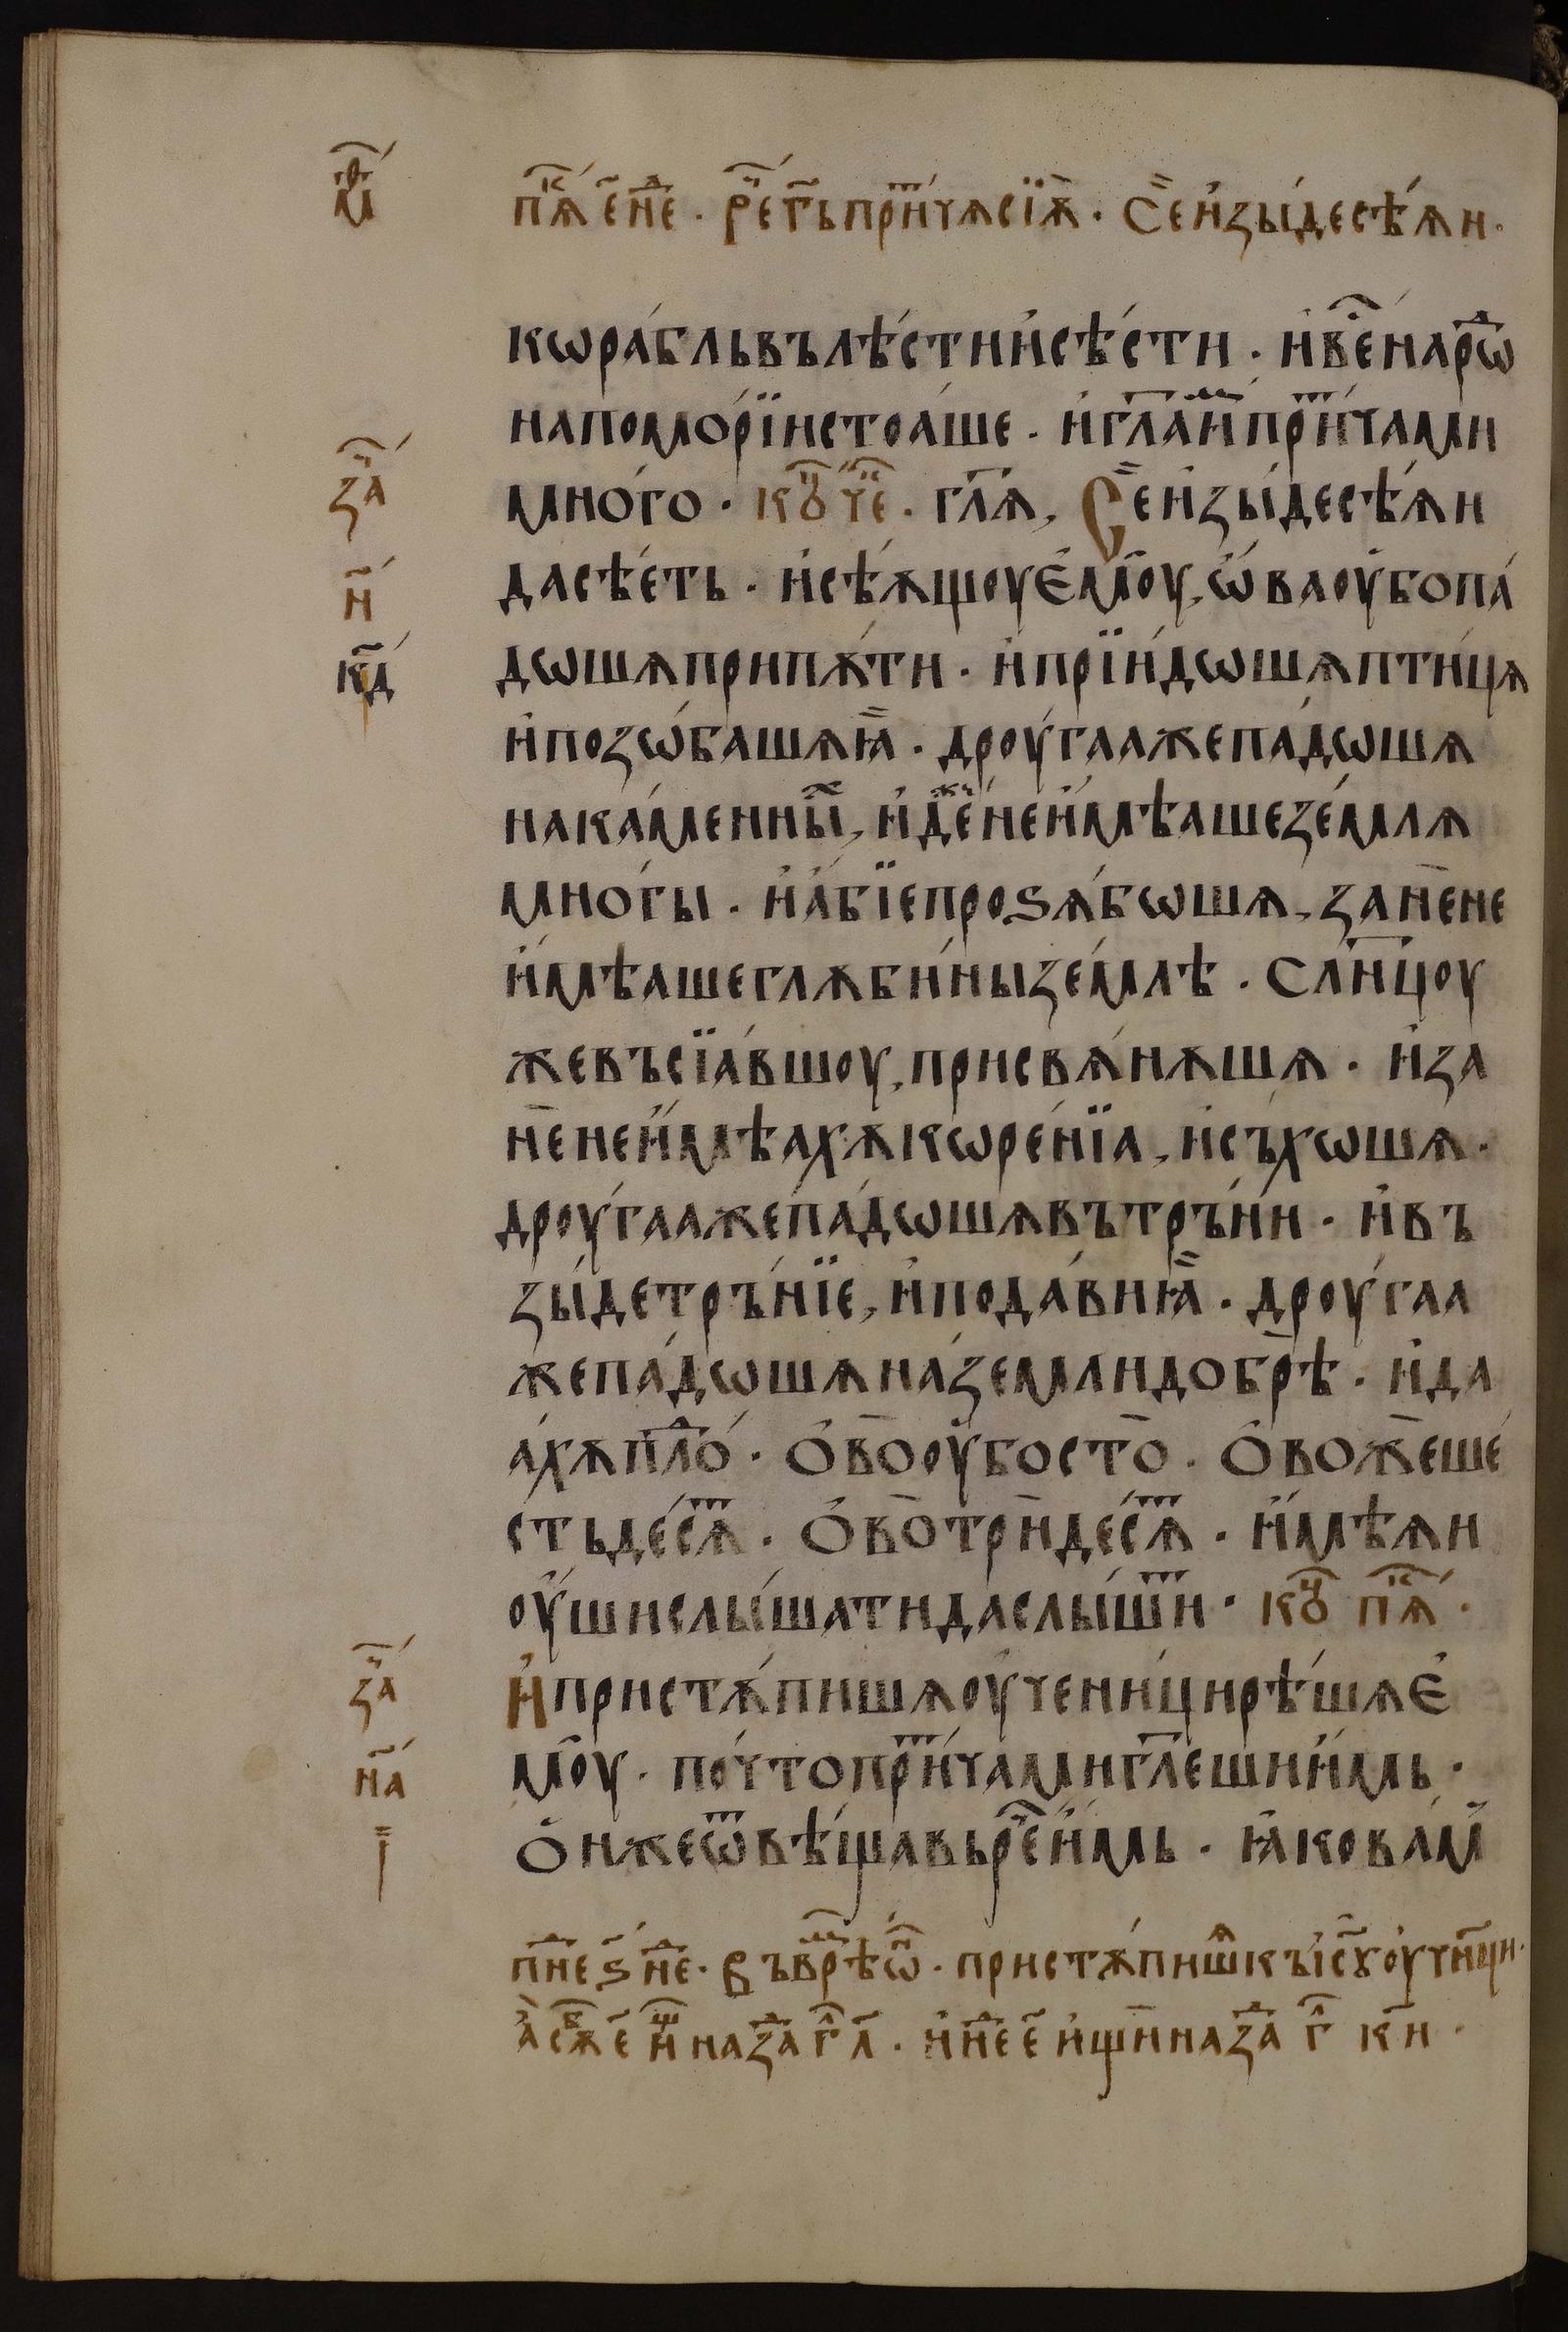 мⷮѳ҃
пⷦ҇ѧ є҃ нⷣе · рⷱ҇е г҃ь прⷮи́чѧ сїѧ̀ · Се̏ и҆зы́де сѣ́ѧи ·
кѡра́бль вълѣ́сти и҆сѣ́сти · и҆ве́ⷭ нарѡⷣ
напомо́рїи стоа́ше · и҆гл҃аиⷨ прⷮи́чами
мно́го · коⷩ҇ꙋ чⷦ҇е · гл҃ѧ, Се̏ и҆зы́десѣ́ѧи
ꙁаⷱ҇
дасѣ́еть · и҆сѣ́ѫщоуе҆мо̀у, ѡ҆ваоу҆бопа́
н҃
дѡшѧприпѫ́ти · и҆прїи́дѡшѧпти́цѧ
к҃д
и҆поꙁѡ́башѧꙗ҆̀ · дроу́гаажепа́дѡшѧ
нака́менныⷯ, и҆деⷤ неи҆мѣашеꙁе́млѧ
мно́гы · и҆а҆́бїепроѕѧ́бѡшѧ, ꙁанѐне
и҆мѣашеглѫби́ныꙁе́млѣ · сл҃нцоу
жевъсїа́вшоу, присвѧ́нѫшѧ · и҆ꙁа
нѐнеи҆мѣахѫкѡре́нїа, и҆съ́хѡшѧ ·
дроу́гаажепа́дѡшѧвътръ́ни · и҆въ
ꙁы́детръ́нїе, и҆пода́виꙗ҆̀ · дроу́гаа
жепа́дѡшѧна́ꙁемлидобрѣ̀ · и҆да
а́хѫплоⷣ · О҆во̀оу҆босто̀ · О҆вожѐше
стьдесѧⷮ · О҆во̀тридесѧⷮ · и҆мѣѧи
оу҆́шислы́шатидаслы́шиⷮ · коⷩ҇ꙋ пⷦ҇ѧ ·
ꙁаⷱ҇
И҆пристѫ́пишѧоу҆чени́цирѣ́шѧе҆
н҃а
мо̀у · по́чтопрⷮи́чамигл҃ешии҆́мь ·
О҆нжеѿвѣ́щавьреⷱ҇и҆́мь · ꙗ҆ковам
пⷣне ѕ҃ нⷣе · Въвⷨрⷨѣѡⷩ · пристѫ́пишⷶ къі҆с҃ꙋоу҆чн҃ци ·
а҆̀ сѫⷠ е҃ и҆щⷤ наꙁаⷱ҇ г҃ л҃ · и҆нⷣе е҃ и҆щѝнаꙁаⷱ҇ г҃ к҃и ·